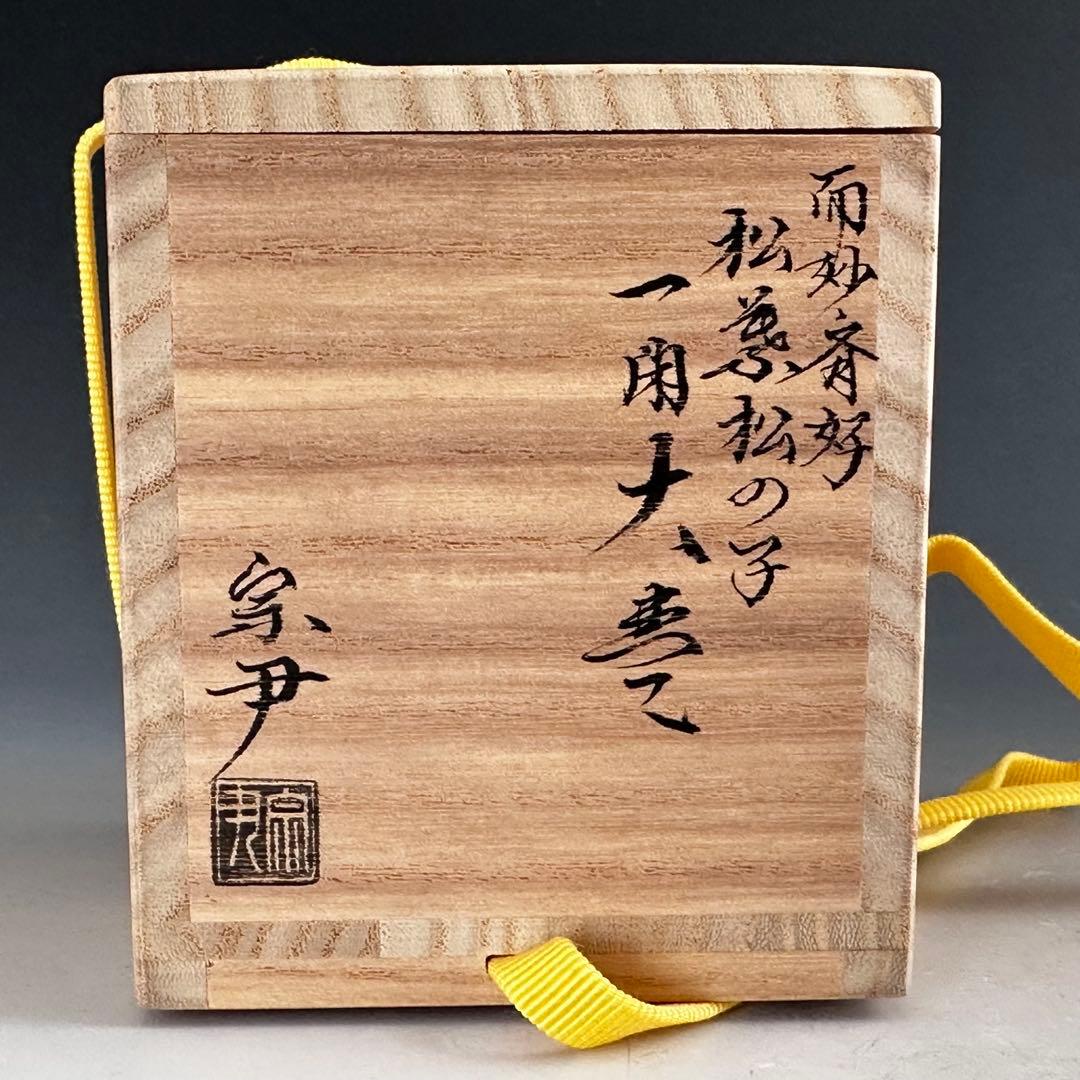 而妙斎好
松葉松の子
一閑大棗
宗尹